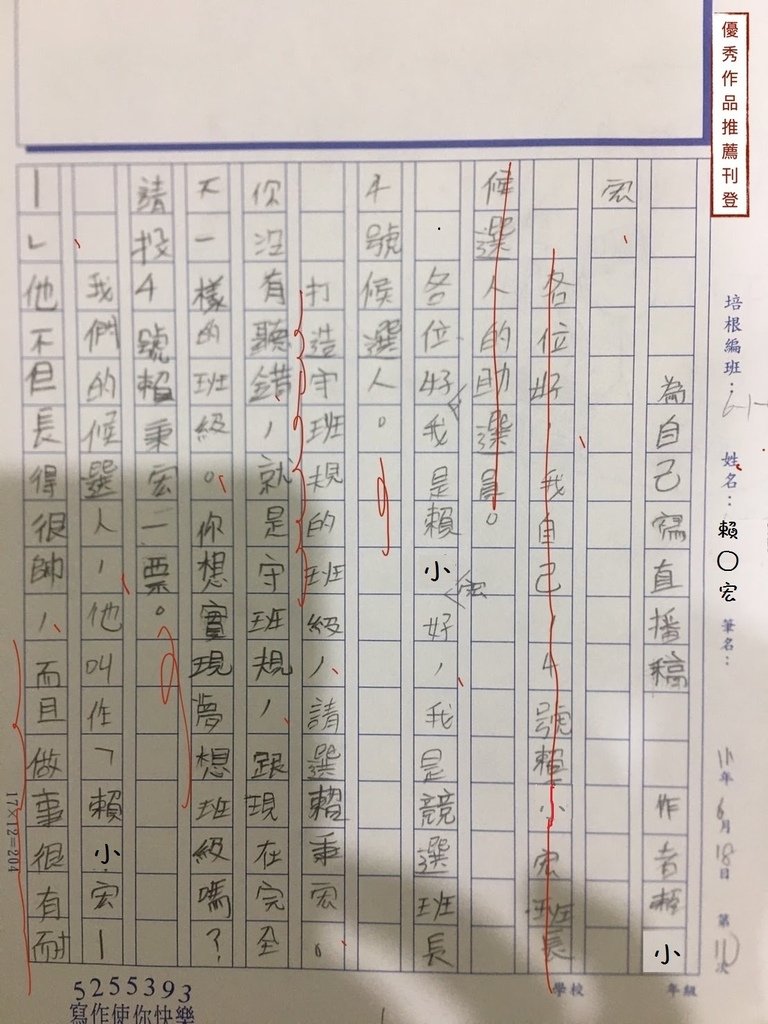 優秀作品推薦刊登
培根編班：6-1-
姓名：賴〇宏
筆名：
11年6月18日 第11次
為自己寫直播稿 作者賴小
宏
各位好，我自己，4號賴小宏班長
候選人的助選員。
各位好我是賴小好，我是競選班長
宏
4號候選人。
打造守班規的班級，請選賴秉宏。
你沒有聽錯，就是守班規，跟現在完全
不一樣的班級。你想實現夢想班級嗎？
請投4號賴秉宏一票。
我們的候選人，他叫作「賴小宏｜
｜」他不但長得很帥，而且做事很有耐
17×12=204
5255393
寫作使你快樂
學校 年級